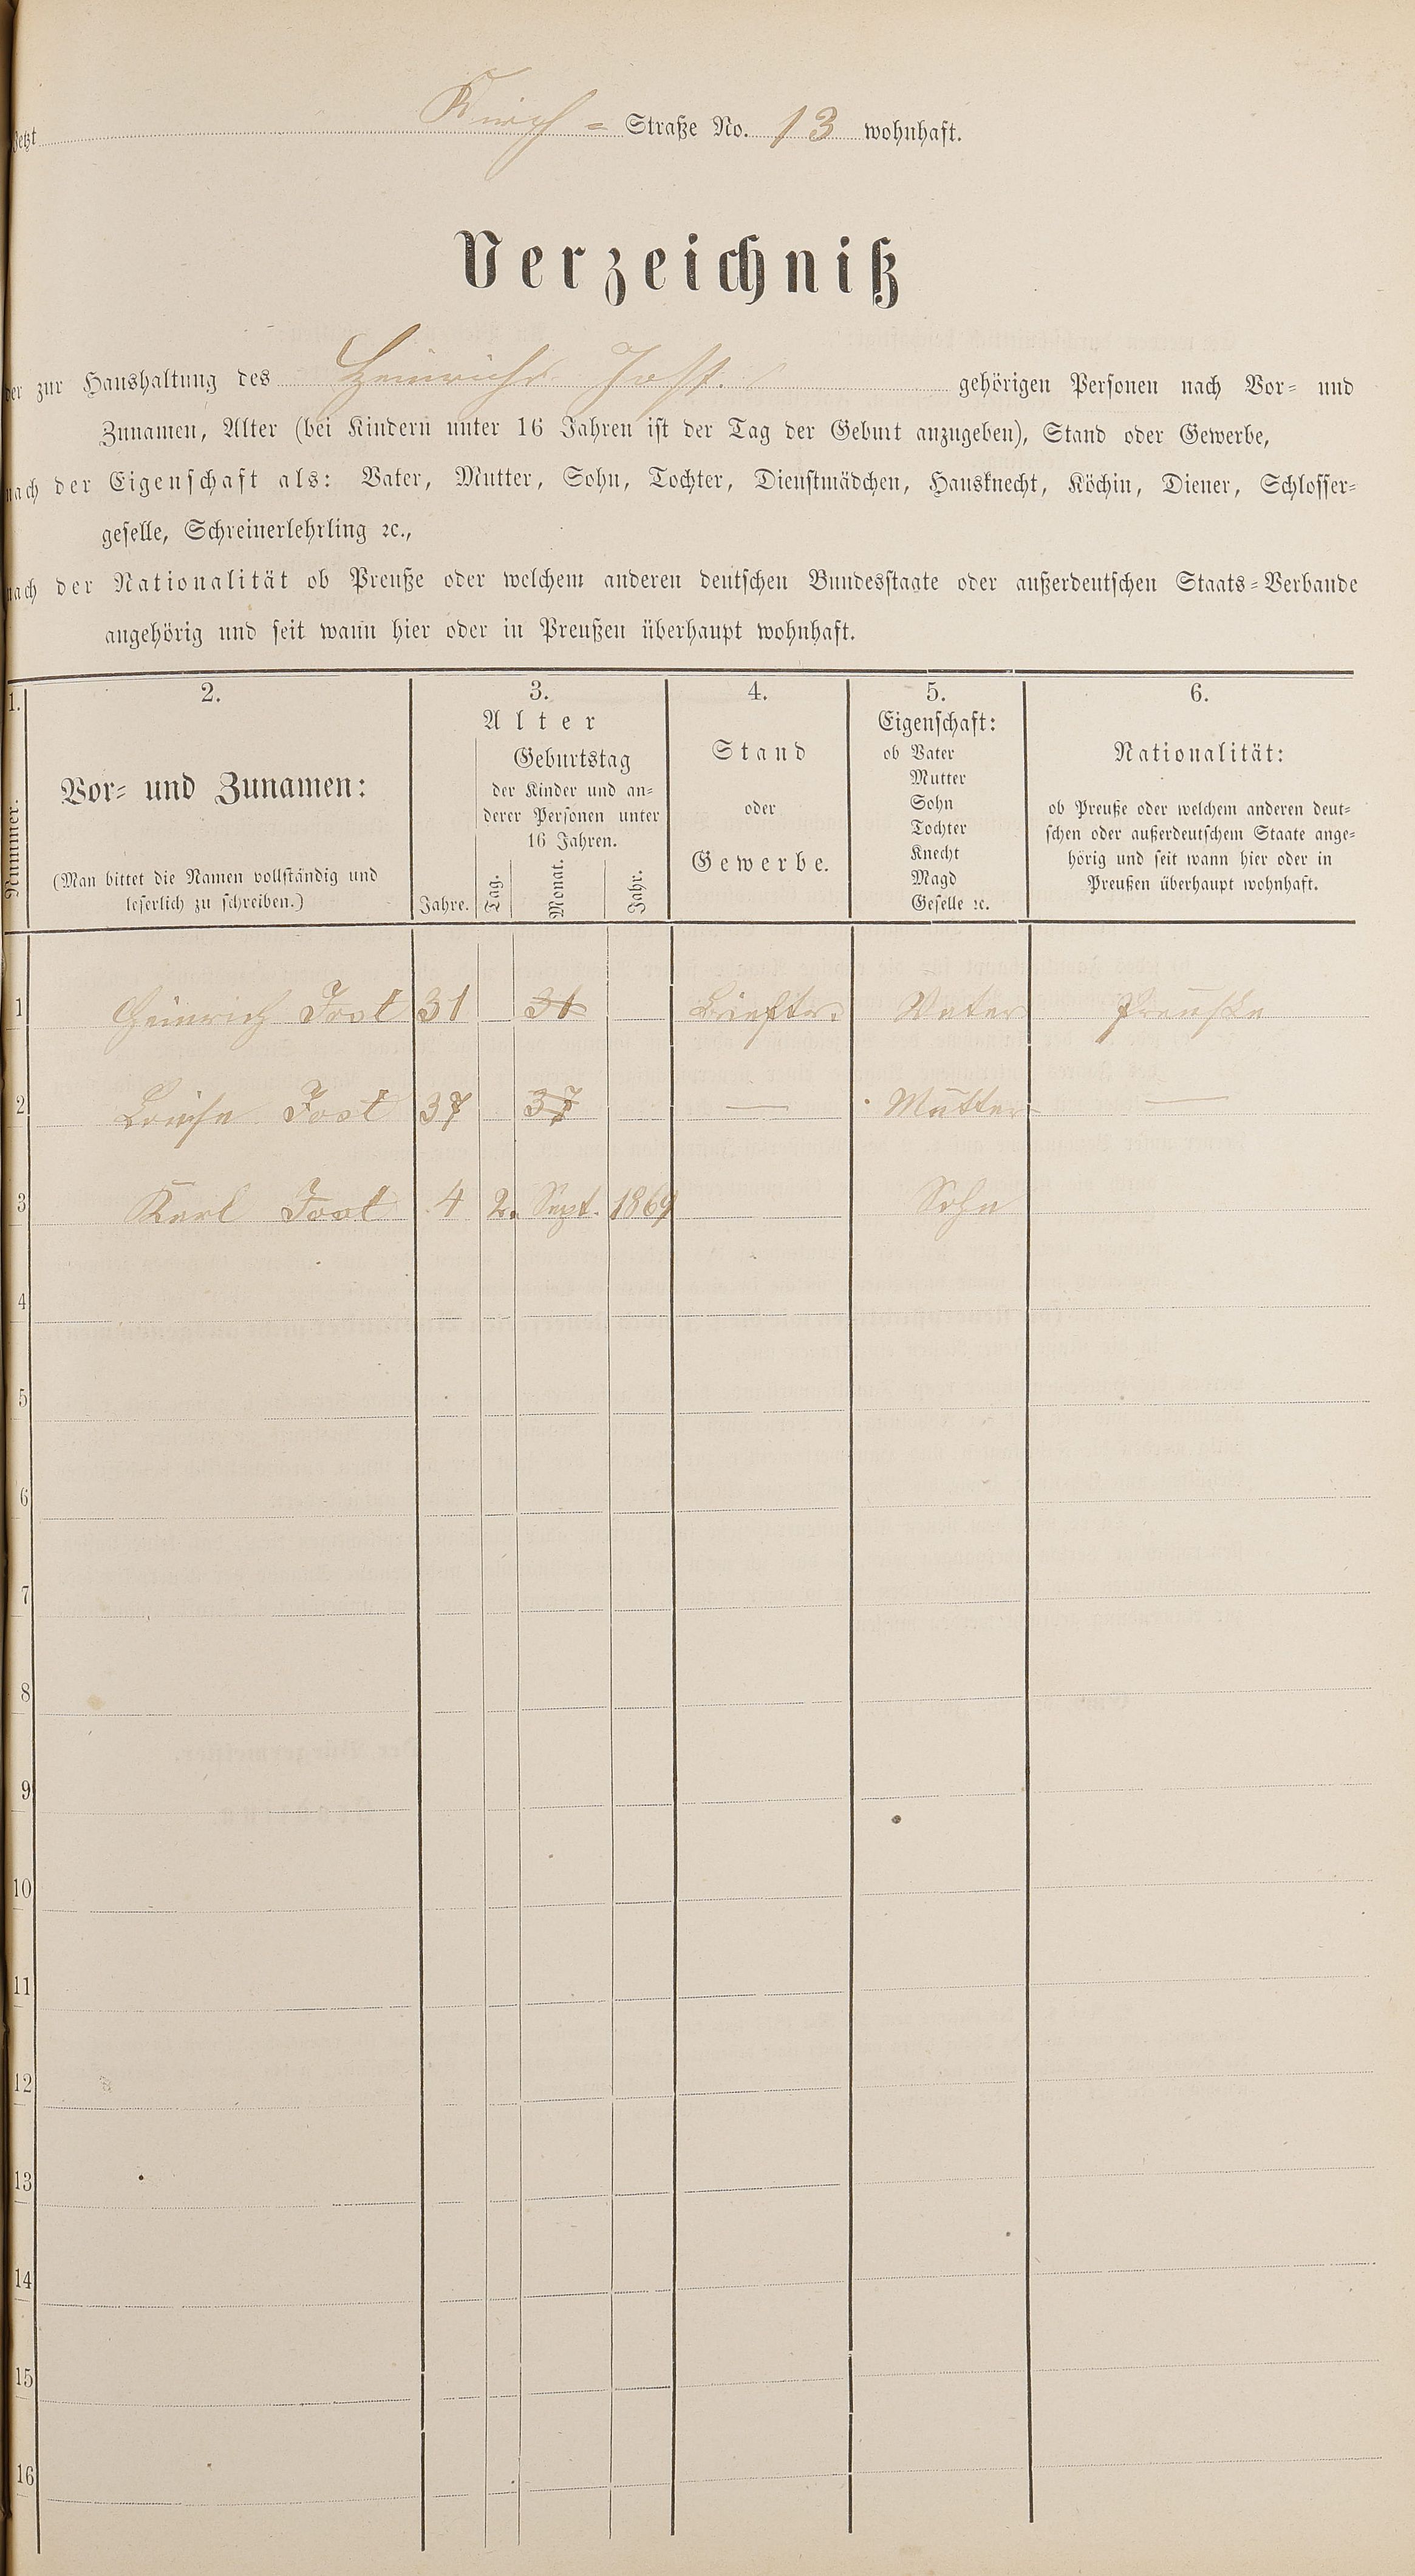 jetzt Kirch = Straße No. 13 wohnhaft.
Verzeichniß
der zur Haushaltung des Heinrich Jost gehörigen Personen nach Vor= und
Zunamen, Alter (bei Kindern unter 16 Jahren ist der Tag der Geburt anzugeben), Stand oder Gewerbe,
nach der Eigenschaft als: Vater, Mutter, Sohn, Tochter, Dienstmädchen, Hausknecht, Köchin, Diener, Schlosser=
geselle, Schreinerlehrling ꝛc.,
nach der Nationalität ob Preuße oder welchem anderen deutschen Bundesstaate oder außerdeutschen Staats=Verbande
angehörig und seit wann hier oder in Preußen überhaupt wohnhaft.
1.
Nummer.
2.
Vor= und Zunamen:
(Man bittet die Namen vollständig und
leserlich zu schreiben.)
3.
Alter
Jahre.
Geburtstag
der Kinder und an=
derer Personen unter
16 Jahren.
Tag. Monat. Jahr.
4.
Stand
oder
Gewerbe.
5.
Eigenschaft:
ob Vater
Mutter
Sohn
Tochter
Knecht
Magd
Geselle ꝛc.
6.
Nationalität:
ob Preuße oder welchem anderen deut=
schen oder außerdeutschem Staate ange=
hörig und seit wann hier oder in
Preußen überhaupt wohnhaft.
1 Heinrich Jost 31 31 Brieftr. Vater Preuße
2 Louise Jost 37 37 — Mutter —
3 Karl Jost 4 2. Sept. 1869 Sohn
4
5
6
7
8
9
10
11
12
13
14
15
16